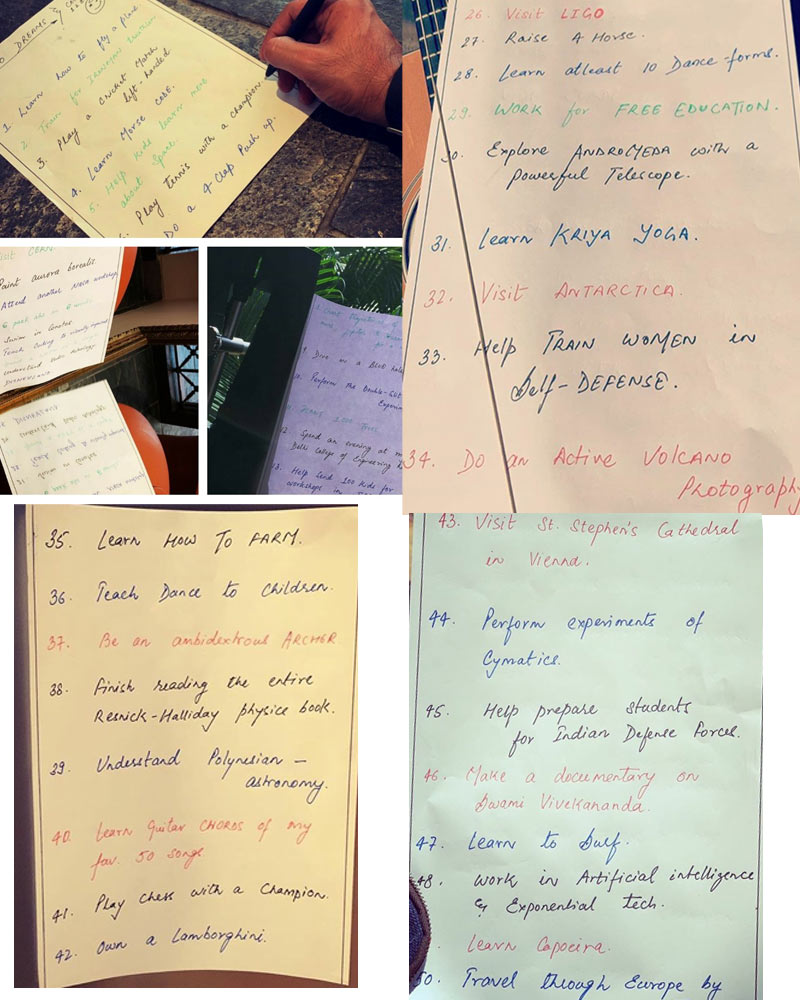 DREAMS
1. Learn how to fly a Plane
2. Train for IRONMAN triathlon
3. Play a CRICKET Match
left-handed
4. Learn Morse Code.
5. Help kids learn more
about Space.
6. Play Tennis with a Champion
DO a 4 Clap Push up.
Visit CERN.
Paint aurora borealis.
Attend another NASA workshop
6 pack abs in
9. Dive in a BLUE hole
Perform the Double-Slit
Experim
PLANT 1000 Trees
12. Spend an evening at m
Delhi College of Engineering
13. Help Send 100 Kids for
workshops in
26. Visit LIGO
27. Raise A Horse.
28. Learn atleast 10 Dance-forms.
29. WORK for FREE EDUCATION.
30. Explore ANDROMEDA with a
powerful Telescope.
31. Learn KRIYA YOGA.
32. Visit ANTARCTICA.
33. Help TRAIN WOMEN in
Self-DEFENSE.
34. Do an Active VOLCANO
Photography
35. Learn HOW TO FARM.
36. Teach Dance to Children.
37. Be an ambidextrous ARCHER
38. Finish reading the entire
Resnick-Halliday physics book.
39. Understand Polynesian –
astronomy.
40. Learn Guitar CHORDS of my
fav. 50 songs
41. Play Chess with a Champion.
42. Own a Lamborghini.
43. Visit St. Stephen's Cathedral
in Vienna.
44. Perform experiments of
Cymatics.
45. Help prepare Students
for Indian Defense Forces.
46. Make a documentary on
Swami Vivekananda.
47. Learn to Surf.
48. Work in Artificial intelligence
& Exponential tech.
Learn Capoeira.
50. Travel through Europe by